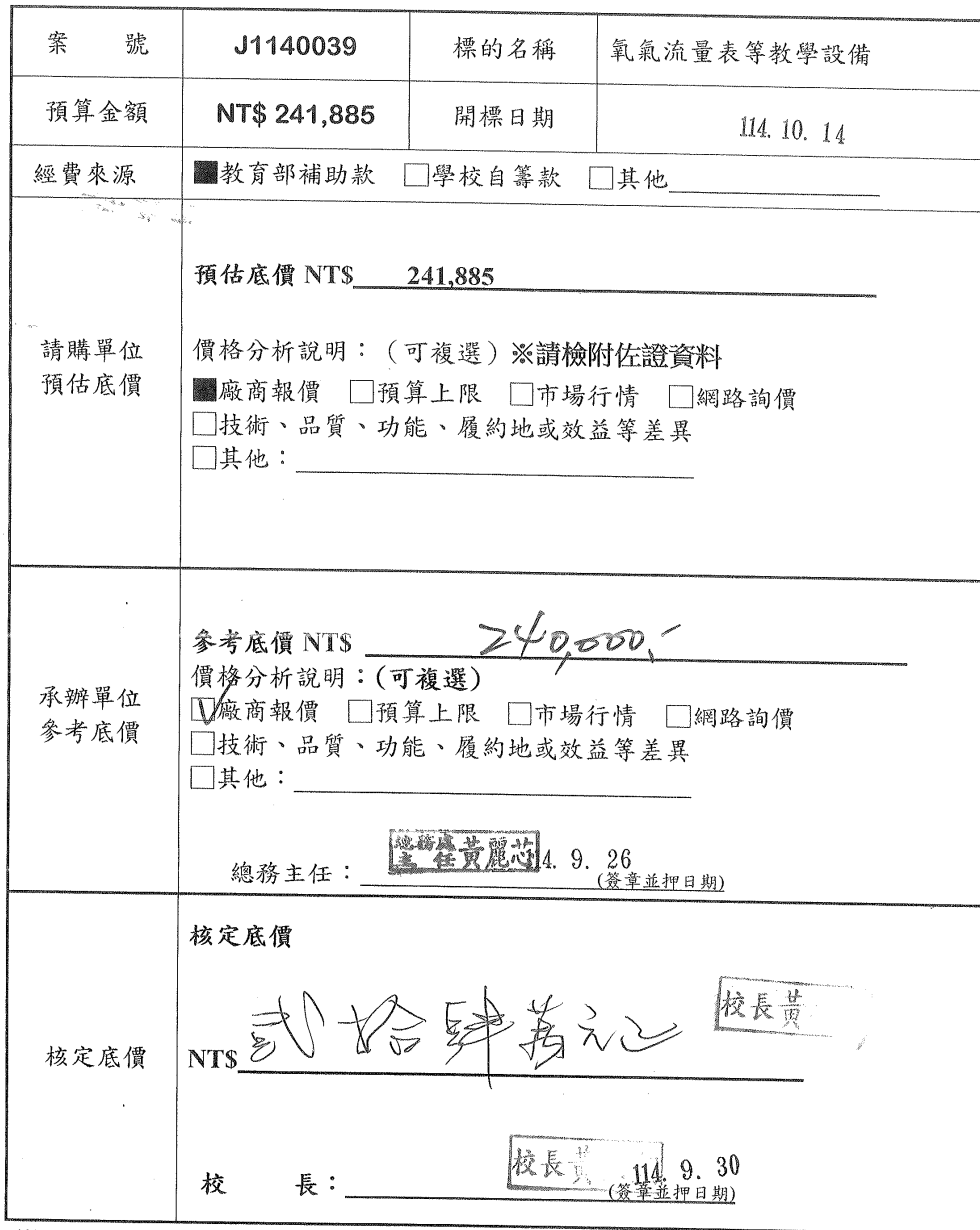 案 號 J1140039 標的名稱 氧氣流量表等教學設備
預算金額 NT$ 241,885 開標日期 114. 10. 14
經費來源 ■教育部補助款 □學校自籌款 □其他
預估底價 NT$ 241,885
請購單位
預估底價
價格分析說明：（可複選）※請檢附佐證資料
■廠商報價 □預算上限 □市場行情 □網路詢價
□技術、品質、功能、履約地或效益等差異
□其他：
參考底價 NT$ 240,000.-
承辦單位
參考底價
價格分析說明：(可複選)
☑廠商報價 □預算上限 □市場行情 □網路詢價
□技術、品質、功能、履約地或效益等差異
□其他：
總務主任： 總務處主任黃麗芯 4. 9. 26
(簽章並押日期)
核定底價
核定底價
NT$ 貳拾肆萬元正 校長黃
校 長： 校長黃 114. 9. 30
(簽章並押日期)